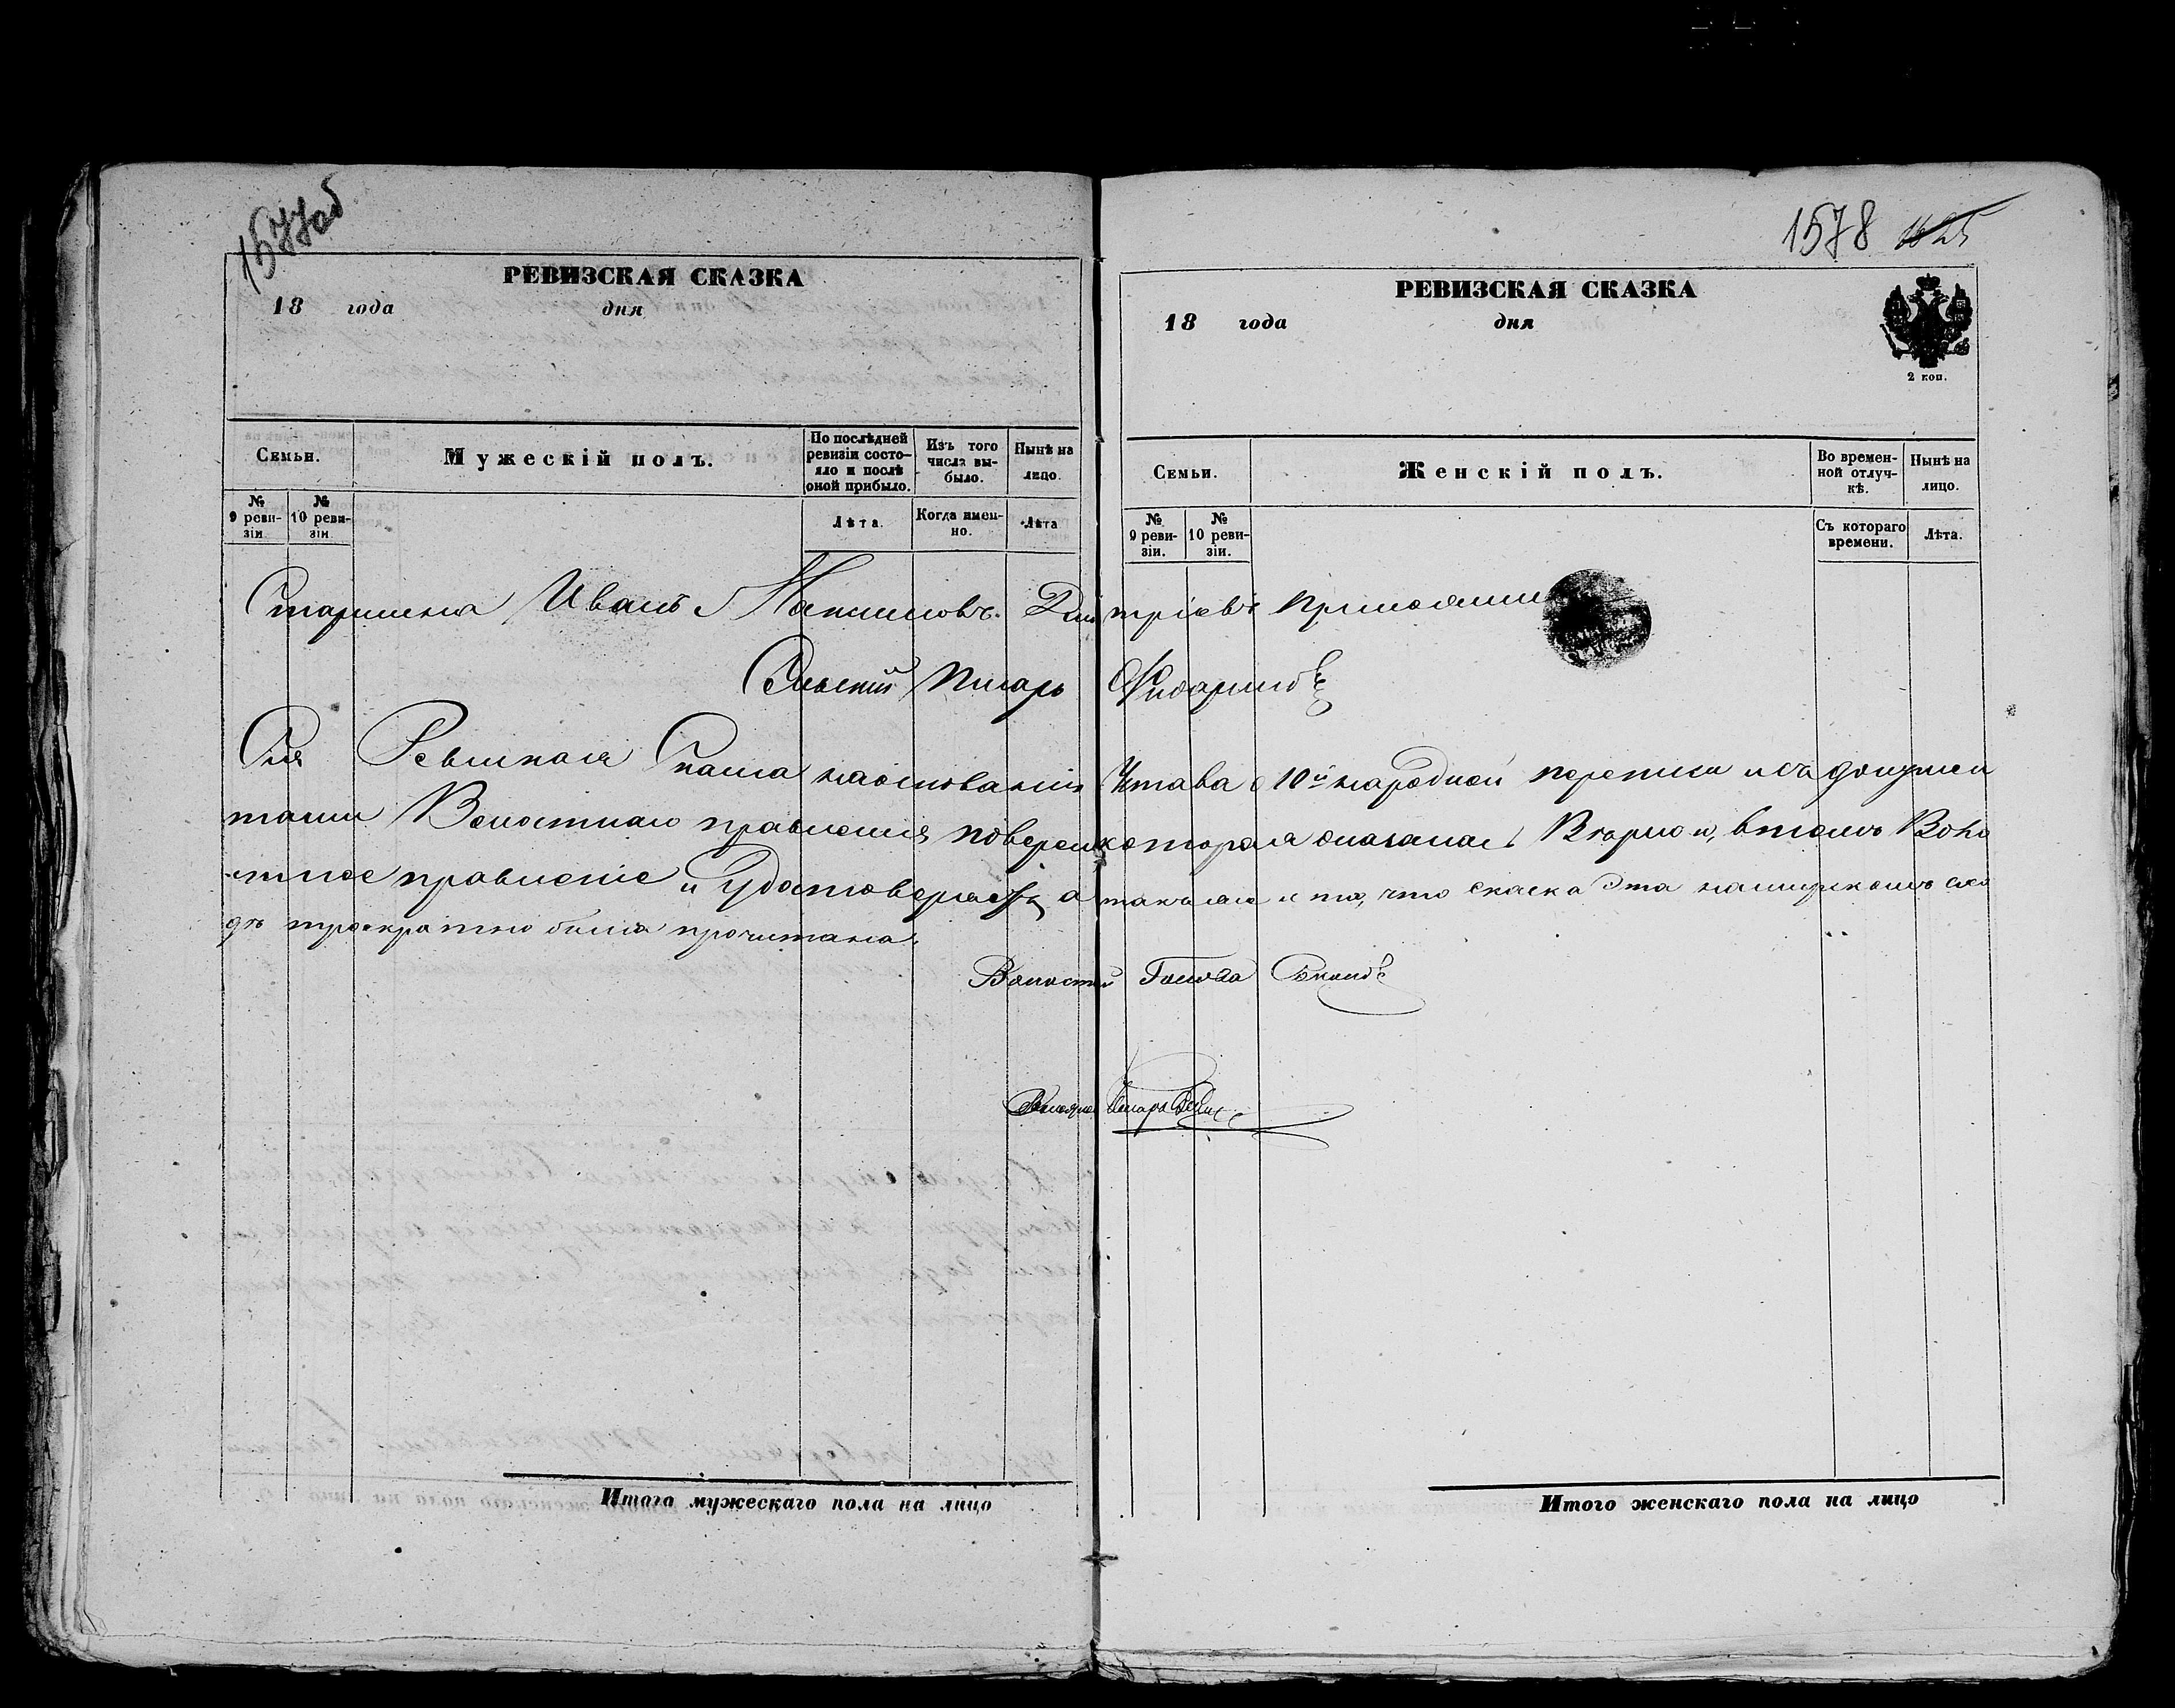 1577об
РЕВИЗСКАЯ СКАЗКА
18 года дня
Семьи.
Мужескій полъ.
По послѣдней ревизіи состо-
яло и послѣ
оной прибыло.
Изъ того
числа вы-
было.
Нынѣ на
лицо.
№
9 реви-
зіи
№
10 реви-
зіи.
Лѣта.
Когда имен-
но.
Лѣта
1578
РЕВИЗСКАЯ СКАЗКА
18 года дня
2 коп.
Семьи.
Женскій полъ.
Во времен-
ной отлуч-
кѣ.
Нынѣ на
лицо.
№
9 реви-
зіи.
№
10 реви-
зіи.
Съ котораго
времени.
Лѣта.
Старшина Иванъ Максимовъ Дмитріевъ
Сельскій Писарь
Сія Ревизкая Сказка наоснованіи Устава о 10й народной переписи и съ докумен
тами Волостнаго правленія поверена которая оказалась Верною, втомъ Воло
стное правленіе и Удостоверяетъ а также и то, что скаска Эта намирскомъ схо
дѣ троекратно была прочитана.
Волостной Голова
Писарь
Итого мужескаго пола на лицо
Итого женскаго пола на лицо